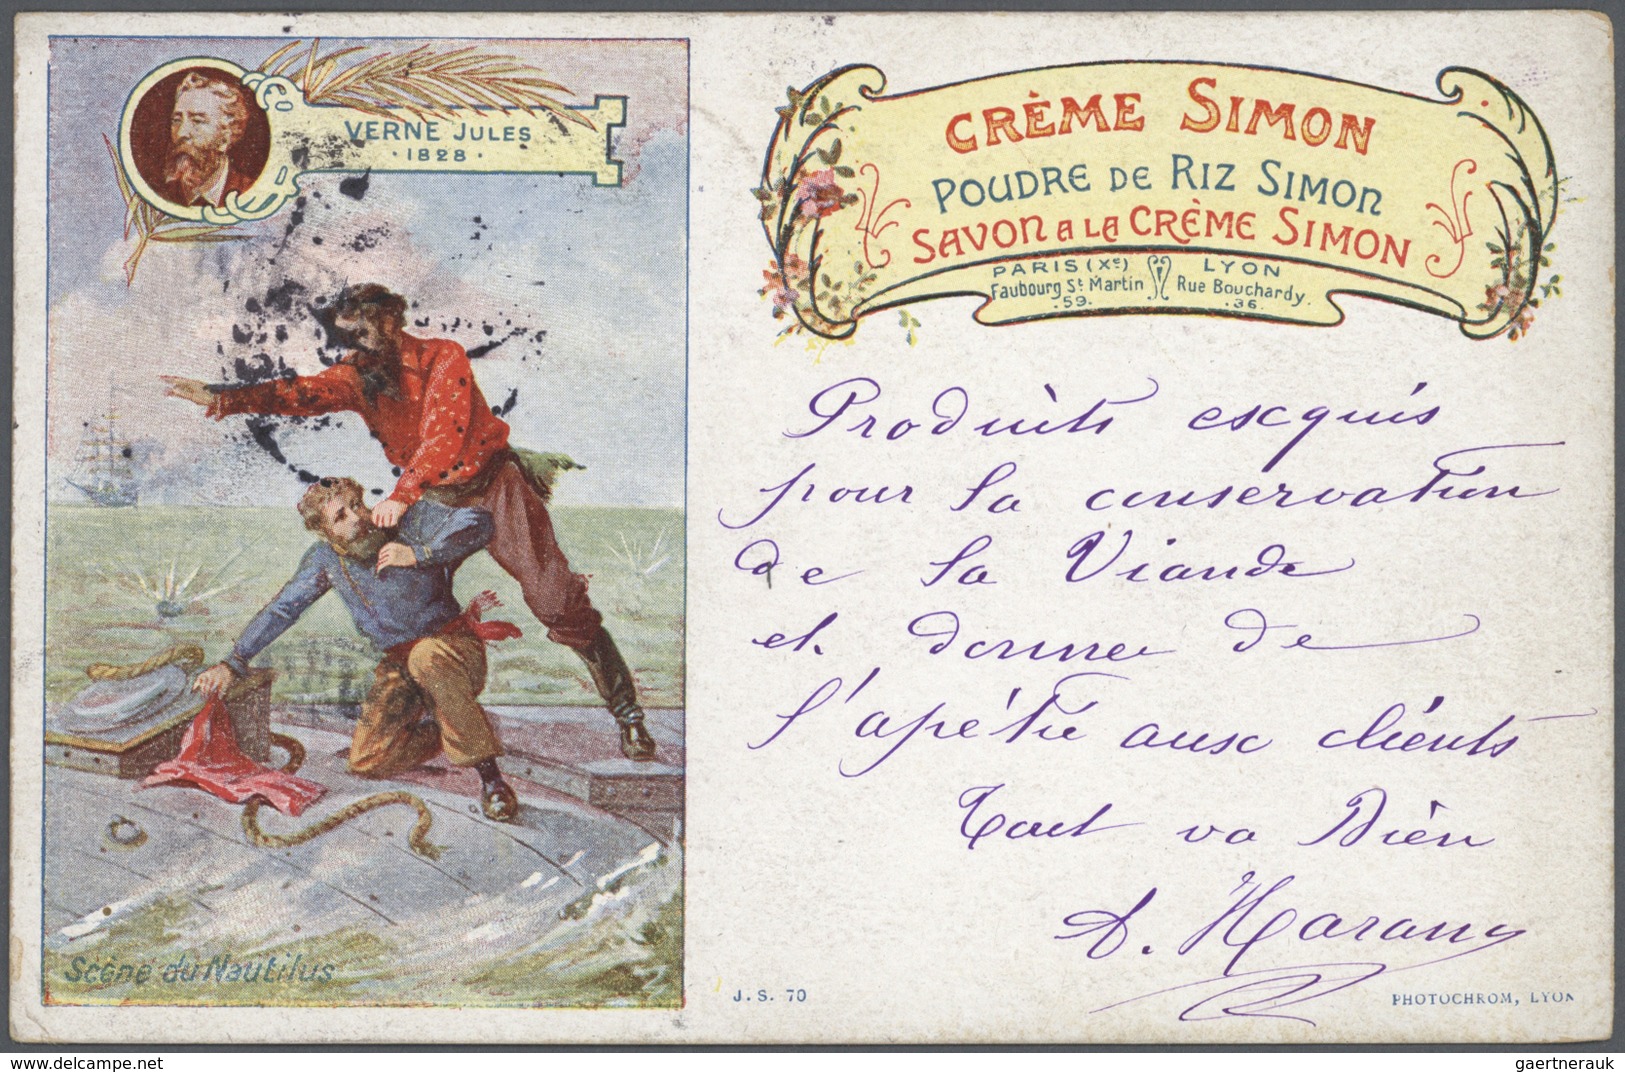 VERNE JULES
· 1828 ·
CRÈME SIMON
POUDRE DE RIZ SIMON
SAVON A LA CRÈME SIMON
PARIS (Xe) LYON
Faubourg St Martin Rue Bouchardy.
. 59. . 36.
Produits exquis
pour la conservation
de la Viande
et donner de
l'apétit aux clients
Tout va Bien
A. Harang
Scène du Nautilus
J. S. 70
PHOTOCHROM, LYON
www.delcampe.net
gaertnerauk